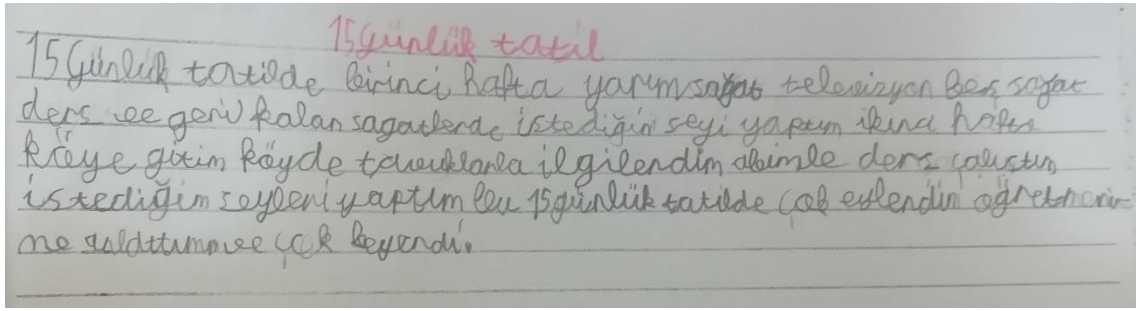 15 günlük tatil
15 Günlük tatilde birinci hafta yarım sağat televizyon Beş sağat
ders ve geri kalan sagatlerde istediğim seyi yaptım ikinci hafta
köye gitim köyde tavuklarla ilgilendim abimle ders çalıştım
istediğim seyleri yaptım bu 15 günlük tatilde çok eylendim öğretmeni
me çok beyendi.